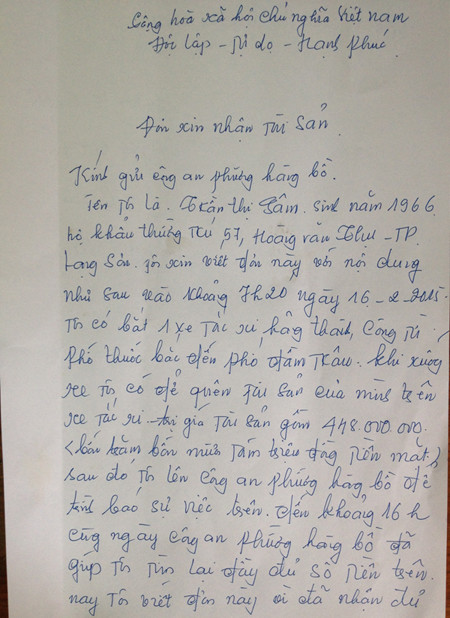 Cộng hoà xã hội chủ nghĩa Việt nam
Độc lập - Tự do - Hạnh phúc
Đơn xin nhận Tài sản.
Kính gửi công an phường hàng bồ.
Tên Tôi là. Trần thị Lâm. sinh năm 1966
hộ khẩu thường Trú 57, Hoàng văn thụ - TP.
Lạng Sơn. Tôi xin viết đơn này với nội dung
như sau vào khoảng 7h20 ngày 16-2-2015.
Tôi có bắt 1 xe Tắc xi
phố thuốc bắc đến phố Trần. khi xuống
xe Tôi có để quên Tài sản của mình trên
xe Tắc xi - trị giá Tài sản gồm 448.000.000.
(bốn trăm bốn mươi Tám triệu đồng Tiền mặt)
sau đó Tôi lên công an phường hàng bồ để
trình báo sự việc trên. đến khoảng 16h
cùng ngày công an phường hàng bồ đã
giúp Tôi Tìm lại đầy đủ số Tiền trên.
nay Tôi viết đơn này vì đã nhận đủ